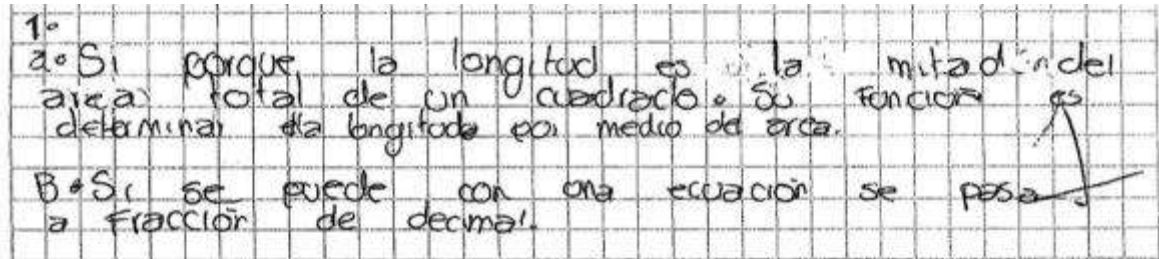 1.
a. Si porque, la longitud es la mitad del
area total de un cuadrado. Su Funcion es
determinar la longitud por medio del area.
B. Si se puede con una ecuación se pasa
a Fracción de decimal.